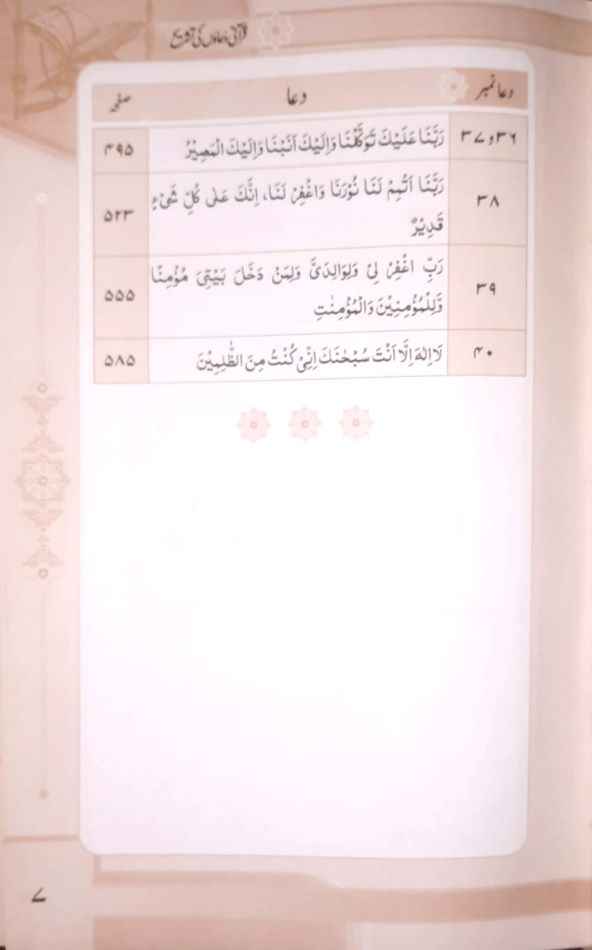 قرآنی دعاؤں کی تشریح
دعا نمبر دعا صفحہ
۳۶و۳۷ رَبَّنَا عَلَيْكَ تَوَكَّلْنَا وَاِلَيْكَ اَنَبْنَا وَاِلَيْكَ الْمَصِيْرُ ۴۹۵
۳۸ رَبَّنَا اَتْمِمْ لَنَا نُوْرَنَا وَاغْفِرْ لَنَا، اِنَّكَ عَلٰى كُلِّ شَىْءٍ ۵۲۳
قَدِيْرٌ
۳۹ رَبِّ اغْفِرْ لِىْ وَلِوَالِدَىَّ وَلِمَنْ دَخَلَ بَيْتِىَ مُؤْمِنًا ۵۵۵
وَّلِلْمُؤْمِنِيْنَ وَالْمُؤْمِنٰتِ
۴۰ لَا اِلٰهَ اِلَّا اَنْتَ سُبْحٰنَكَ اِنِّىْ كُنْتُ مِنَ الظّٰلِمِيْنَ ۵۸۵
۷